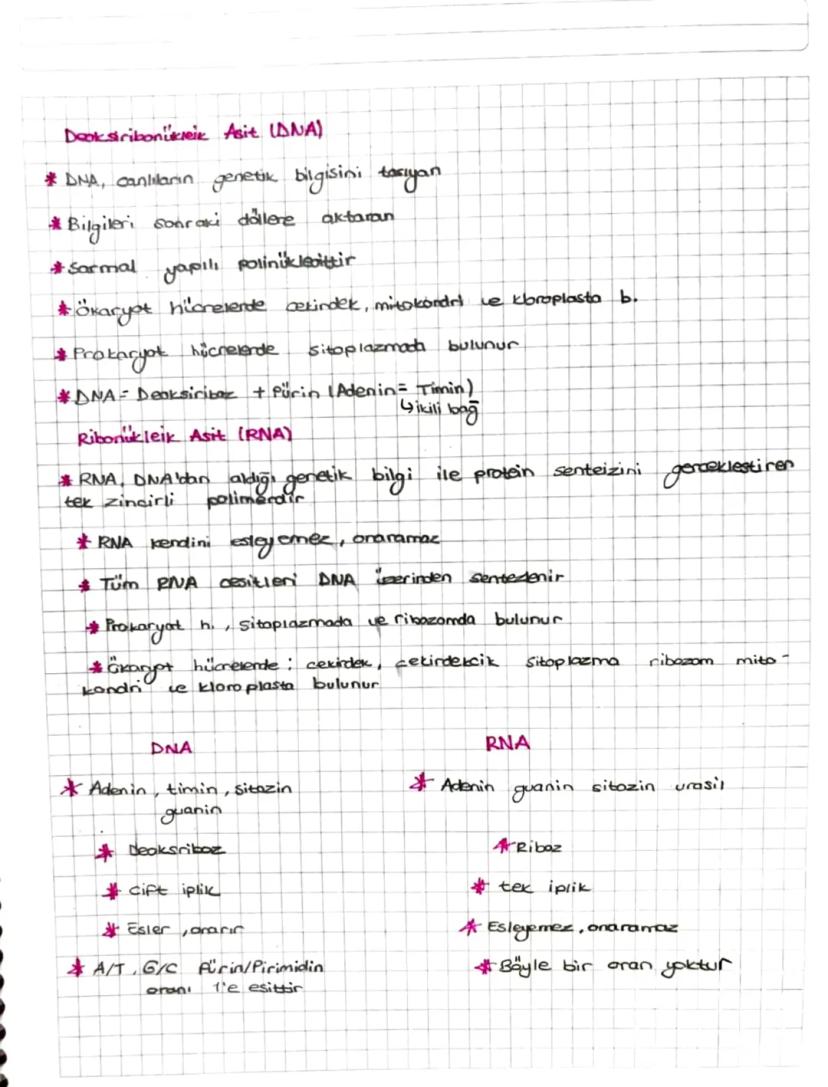 Deoksiribonükleik Asit (DNA)
* DNA, canlıların genetik bilgisini tasıyan
* Bilgileri sonraki döllere aktaran
* Sarmal yapılı polinükleoittir
* Ökaryot hücrelerde cekirdek, mitokondri ve kloroplasta b.
* Prokaryot hücrelerde sitoplazmada bulunur
* DNA = Deoksiriboz + Pürin (Adenin = Timin)
↳ ikili bağ
Ribonükleik Asit (RNA)
* RNA, DNA'dan aldığı genetik bilgi ile protein senteizini gercekleştiren
tek zincirli polimerdir
* RNA kendini esleyemez, onaramaz
* Tüm RNA cesitleri DNA üzerinden sentezlenir
* Prokaryot h., sitoplazmada ve ribozomda bulunur
* Ökaryot hücrelerde : cekirdek, cekirdekcik sitoplazma ribozom mito-
kondri ve kloroplasta bulunur
DNA RNA
* Adenin, timin, sitozin * Adenin guanin sitozin urasil
guanin
* Deoksriboz * Riboz
* Cift iplik * tek iplik
* Esler, onarır * Esleyemez, onaramaz
* A/T, G/C Pürin/Pirimidin * Böyle bir oran yoktur
oranı 1'e esittir